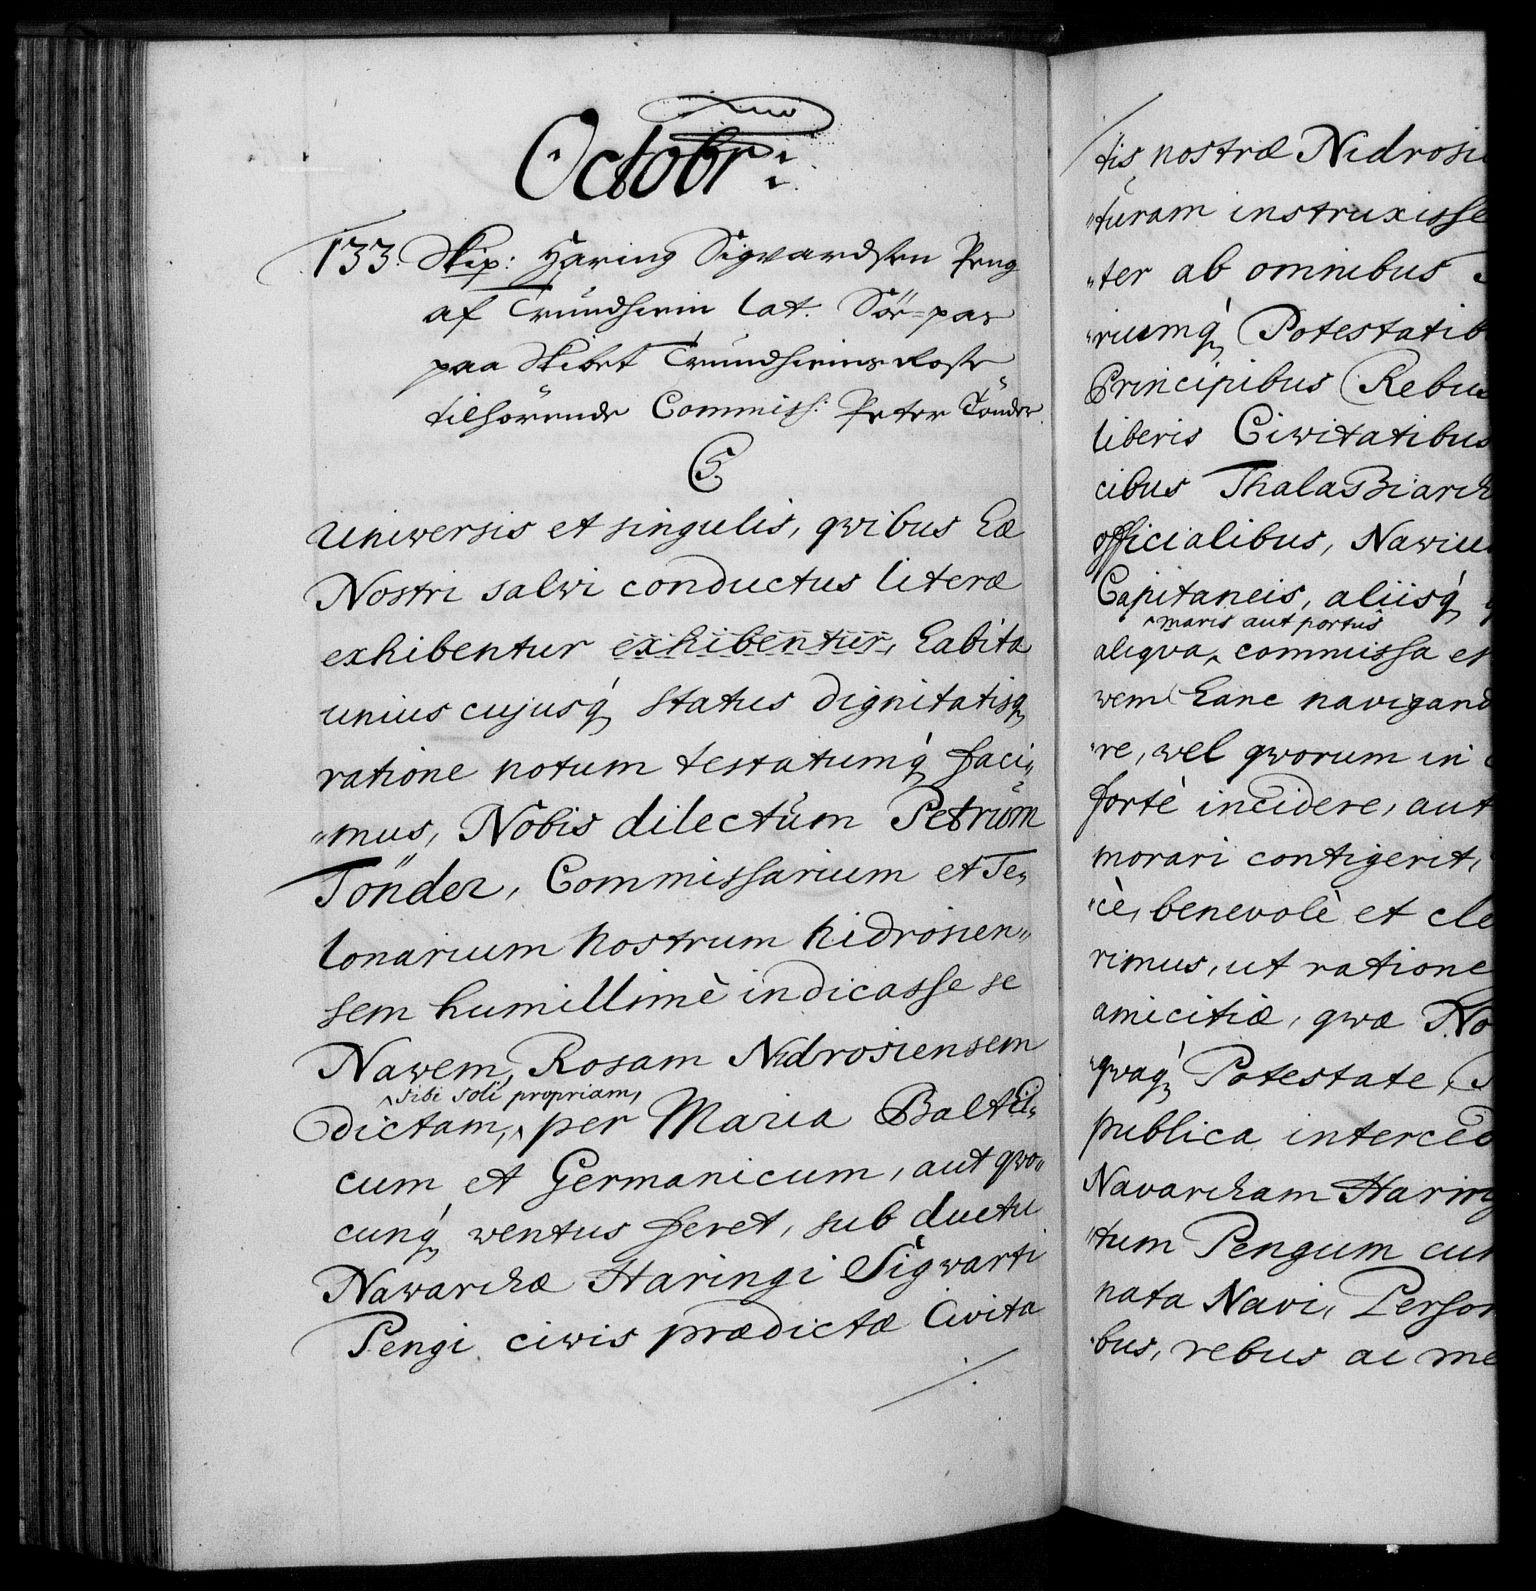 Octobr:
133. Skip: Haring Sigvardsen Peng
af Trundhiem lat. Sör=pas
paa Skibet Trundhiems Rose
tilhörende Commiss: Peter Tönder.
C5.
Universis et singulis, qvibus hæ
Nostri salvi conductus literæ
exhibentur exhibentur, habita
unius cujusq́ status dignitatisq́
ratione notum testatumq́ faci„
„mus, Nobis dilectŭm Petrŭm
Tönder, Commissarium et Te„
lonarium nostrum nidrosien„
sem humillimè indicasse se
Nawem, Rosam Nidrosiensem
^sibi soli propriam,
dictam,^ per Maria Balthi„
cum et Germanicum, aut qvo„
cunq́ ventus feret, sub ductu
Nawarchæ Haringi Sigwarti
Pengi civis prædictæ Civita
tis nostræ Nidrosi
„turam instruxisse
„ter ab omnibus
„riumq́ Potestatib
Principibus Rebus
liberis Civitatibus
cibus Thalassiarch
officialibus, Naviu
Capitaneis, aliisq́
^maris aut portus
aliqva^ commissa e
vem hanc navigand
„re, vel qvorum in
fortè incidere, aut
morari contigerit,
„cè, benevolè et cle
rimus, ut ratione
amicitiæ, qvæ No
„qvaq́ Potestate,
publica interced
Navarcham Haring
„tum Pengum cu
nata Navi, Person
„bus, rebus ac me